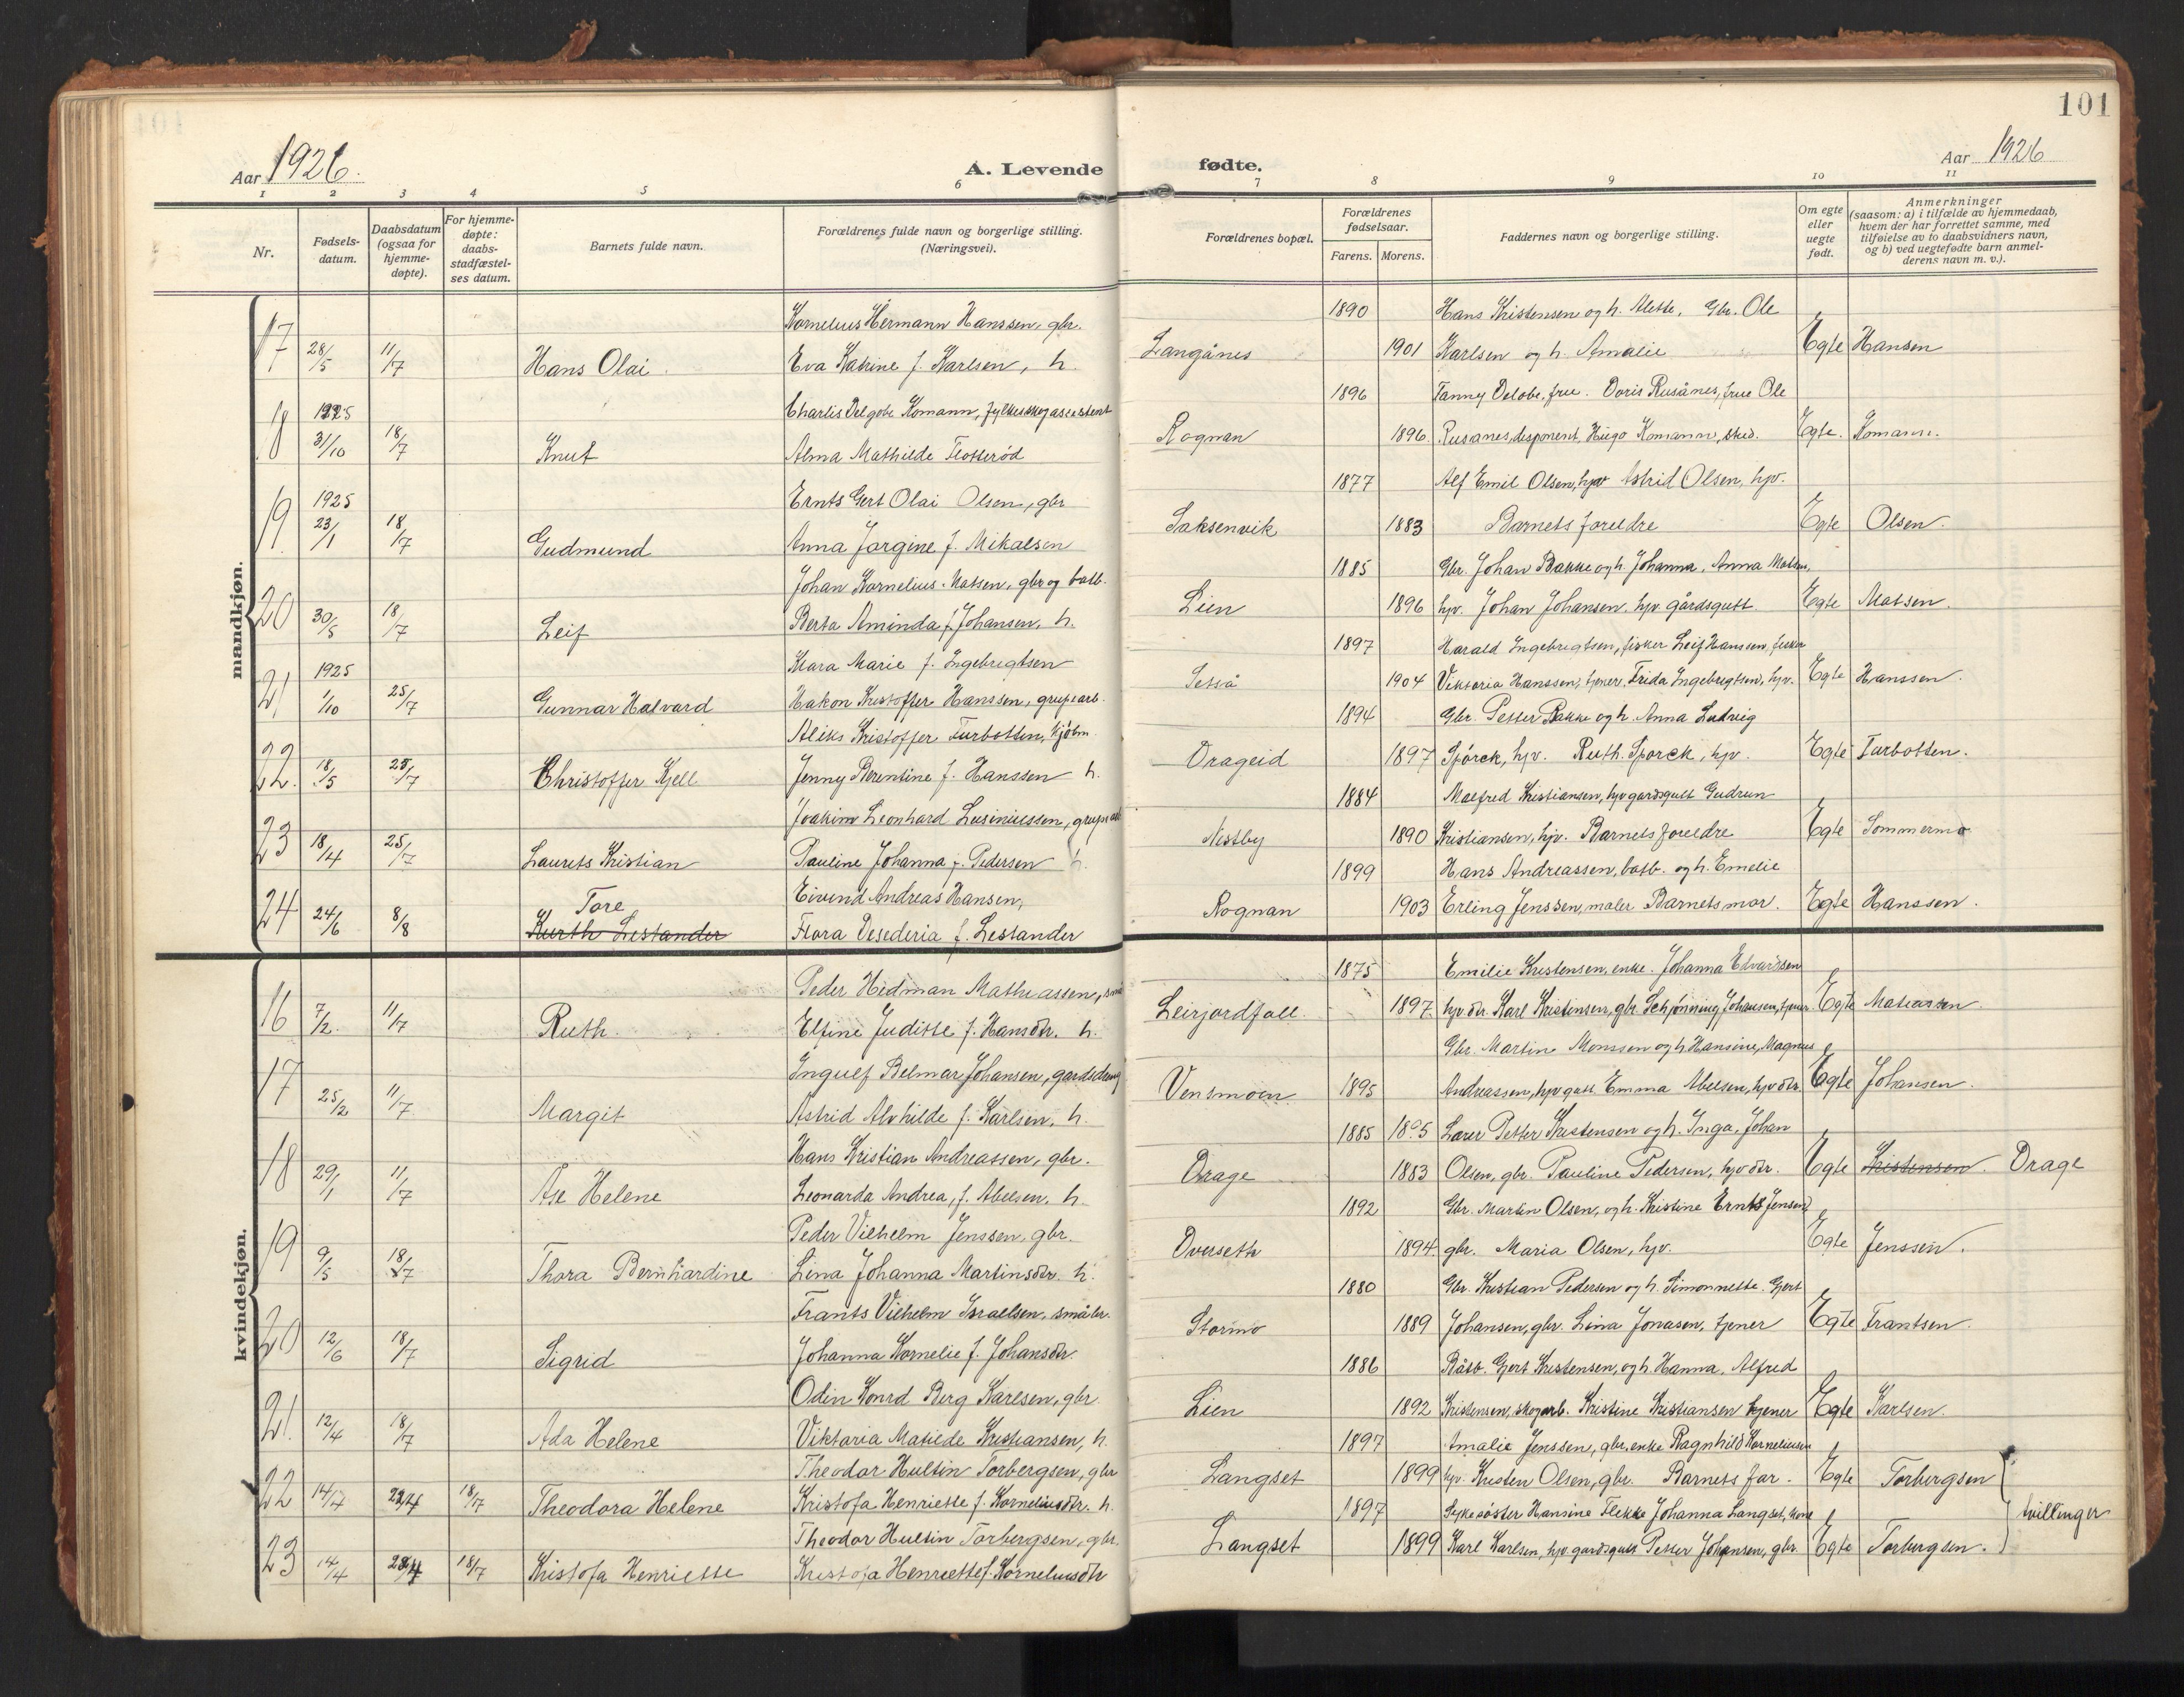 101
Aar 1926.
A. Levende fødte.
Aar 1926
1 2 3 4 5 6 7 8 9 10 11
Nr.
Fødsels-
datum.
Daabsdatum
(ogsaa for
hjemme-
døpte).
For hjemme-
døpte:
daabs-
stadfæstel-
ses datum.
Barnets fulde navn.
Forældrenes fulde navn og borgerlige stilling.
(Næringsvei).
Forældrenes bopæl.
Forældrenes
fødselsaar.
Farens. Morens.
Faddernes navn og borgerlige stilling.
Om egte
eller
uegte
født.
Anmerkninger
(saasom: a) i tilfælde av hjemmedaab,
hvem der har forrettet samme, med
tilføielse av to daabsvidners navn,
og b) ved uegtefødte barn anmel-
derens navn m. v.).
mandkjøn.
Kornelius Hermann Hanssen, gbr. 1890 Hans Kristensen og h. Alette. Gbr. Ole
17 28/5 11/7 Hans Olai. Eva Katrine f. Karlsen, h. Langånes 1901 Karlsen og h. Amalie Egte Hansen
1925 Charlis Delgobe Komann, 1896 Fanny Delobe, frue. Doris Rusånes, frue Ole
18 31/10 18/7 Knut Alma Mathilde Flotterød Rognan 1896. Rusanes, disponent, Hugo Komann, stud. Egte. Komann.
1925 Ernts Gert Olai Olsen, gbr 1877 Alf Emil Olsen, hjv Astrid Olsen, hjv.
19. 23/1 18/7 Gudmund Anna Jorgine f. Mikalsen Saksenvik 1883 Barnets foreldre Egte Olsen.
Johan Kornelius Matsen, gbr og batb. 1885 Gbr. Johan Bakke og h. Johanna. Anna Matsen,
20 30/5 18/7 Leif Berta Aminda f. Johansen, h. Lien 1896 hjv. Johan Johansen, hjv. gårdsgutt Egte Matsen.
1925 Klara Marie f. Ingebrigtsen 1897 Harald Ingebrigtsen, fisker Leif Hanssen, fisker
21 1/10 25/7 Gunnar Halvard Hakon Kristoffer Hanssen, grupearb. Setså 1904 Viktoria Hanssen, tjener, Frida Ingebrigtsen, hjv. Egte Hanssen.
Aliks Kristoffer Turbotten, kjøbm. 1894 Gbr. Petter Bakke og h. Anna Ludvig
22. 18/5 25/7 Christoffer Kjell Jenny Berentine f. Hanssen h. Drageid 1897 Spörck, hjv. Ruth. Sporck, hjv. Egte Turbotten.
Joakim Leonhard Lusiniussen, 1884 Malfred Kristiansen, hjv gardsgutt Gudrun
23 18/4 25/7 Laurits Kristian Pauline Johanna f. Pedersen h. Nestby 1890 Kristiansen, hjv. Barnets foreldre Egte Sommermo
Tore Eivind Andreas Hansen, 1899 Hans Andreassen, batb. og h. Emelie
24 24/6 8/8 Kurth Lestander Flora Desederia f. Lestander Rognan 1903 Erling Jenssen, maler Barnets mor. Egte Hanssen.
kvindekjøn.
Peder Hedman Mathiassen, 1875 Emilie Kristensen, enke. Johanna Edvardsen
16 7/2. 11/7 Ruth. Elfine Juditte f. Hansdtr. h. Leirjordfall. 1897 hjv dtr. Karl Kristensen, gbr. Schjönning Johansen, tjener. Egte Matiassen
Ingulf Belmar Johansen, gardsdreng Gbr. Martine Monssen og h. Hansine, Magnus
17 25/2 11/7 Margit Astrid Alvhilde f. Karlsen, h. Vensmoen 1895 Andreassen, hjv gutt Emma Abelsen, hjv dtr. Egte Johansen.
Hans Kristian Andreassen, gbr. 1885 1895 Lærer Petter Kristensen og h. Inga, Johan
18 29/1 11/7 Ase Helene Leonarda Andrea, f. Abelsen. h. Drage 1883 Olsen, gbr. Pauline Pedersen, hjv dtr. Egte Kristensen. Drage
Peder Vilhelm Jenssen, gbr. 1892 Gbr. Martin Olsen, og h. Kristine Ernts Jensen
19 9/5 18/7 Thora Bernhardine Lina Johanna Martinsdtr. h. Overseth 1894 gbr. Maria Olsen, hjv. Egte Jenssen.
Frants Vilhelm Israelsen, småbr. 1880 Gbr. Kristian Pedersen og h. Simonnette. Gjert
20 12/6 18/7 Sigrid Johanna Kornelie f. Johansdtr. Stormo 1889 Johansen, gbr. Lina Jonasen, tjener Egte Frantsen.
Odin Konrd Berg Karlsen, gbr 1886 Båtb. Gjert Kristensen, og h. Hanna. Alfred
21. 12/4 18/7 Ada Helene Viktoria Matilde Kristiansen, h. Lien 1892 Kristensen, skogarb. Kristine Kristiansen tjener Egte Karlsen.
Theodor Hultin Torbergsen, gbr 1897 Amalie Jenssen, gbr. enke Ragnhild Korneliusen
22 14/4 18/7 Theodora Helene Kristofa Henriette f. Korneliusdtr. h. Langset 1899 hjv. Kristen Olsen, gbr. Barnets far. Egte Torbergsen
Theodor Hultin Torbergsen, gbr. 1897 Sykesöster Hansine Flekke Johanna Langset, kone tvillinger
23 14/4 18/7 Kristofa Henriette Kristofa Henriette f. Korneliusdtr Langset 1899 Karl Karlsen, hjv gardsgutt Petter Johansen, gbr. Egte Torbergsen.